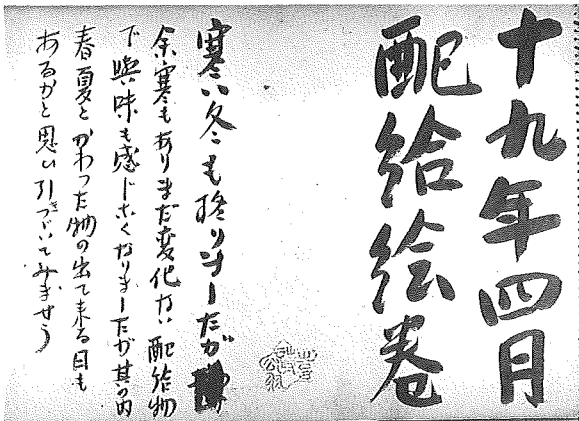 十九年四月
配給絵巻
寒い冬も終りましたが
余寒もありまだ変化ない配給物
で興味も感じなくなりましたが其の内
春夏とかわつた物の出て来る日も
あるかと思い引きつゞいてみませう